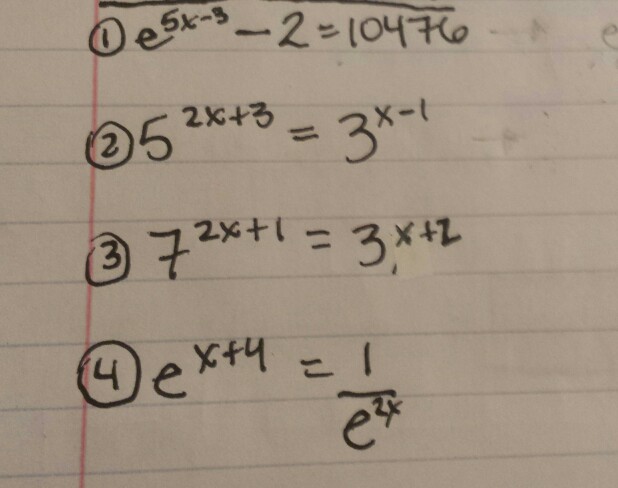 ① e^(5x-3) - 2 = 10476
② 5^(2x+3) = 3^(x-1)
③ 7^(2x+1) = 3^(x+2)
④ e^(x+4) = 1/e^(2x)